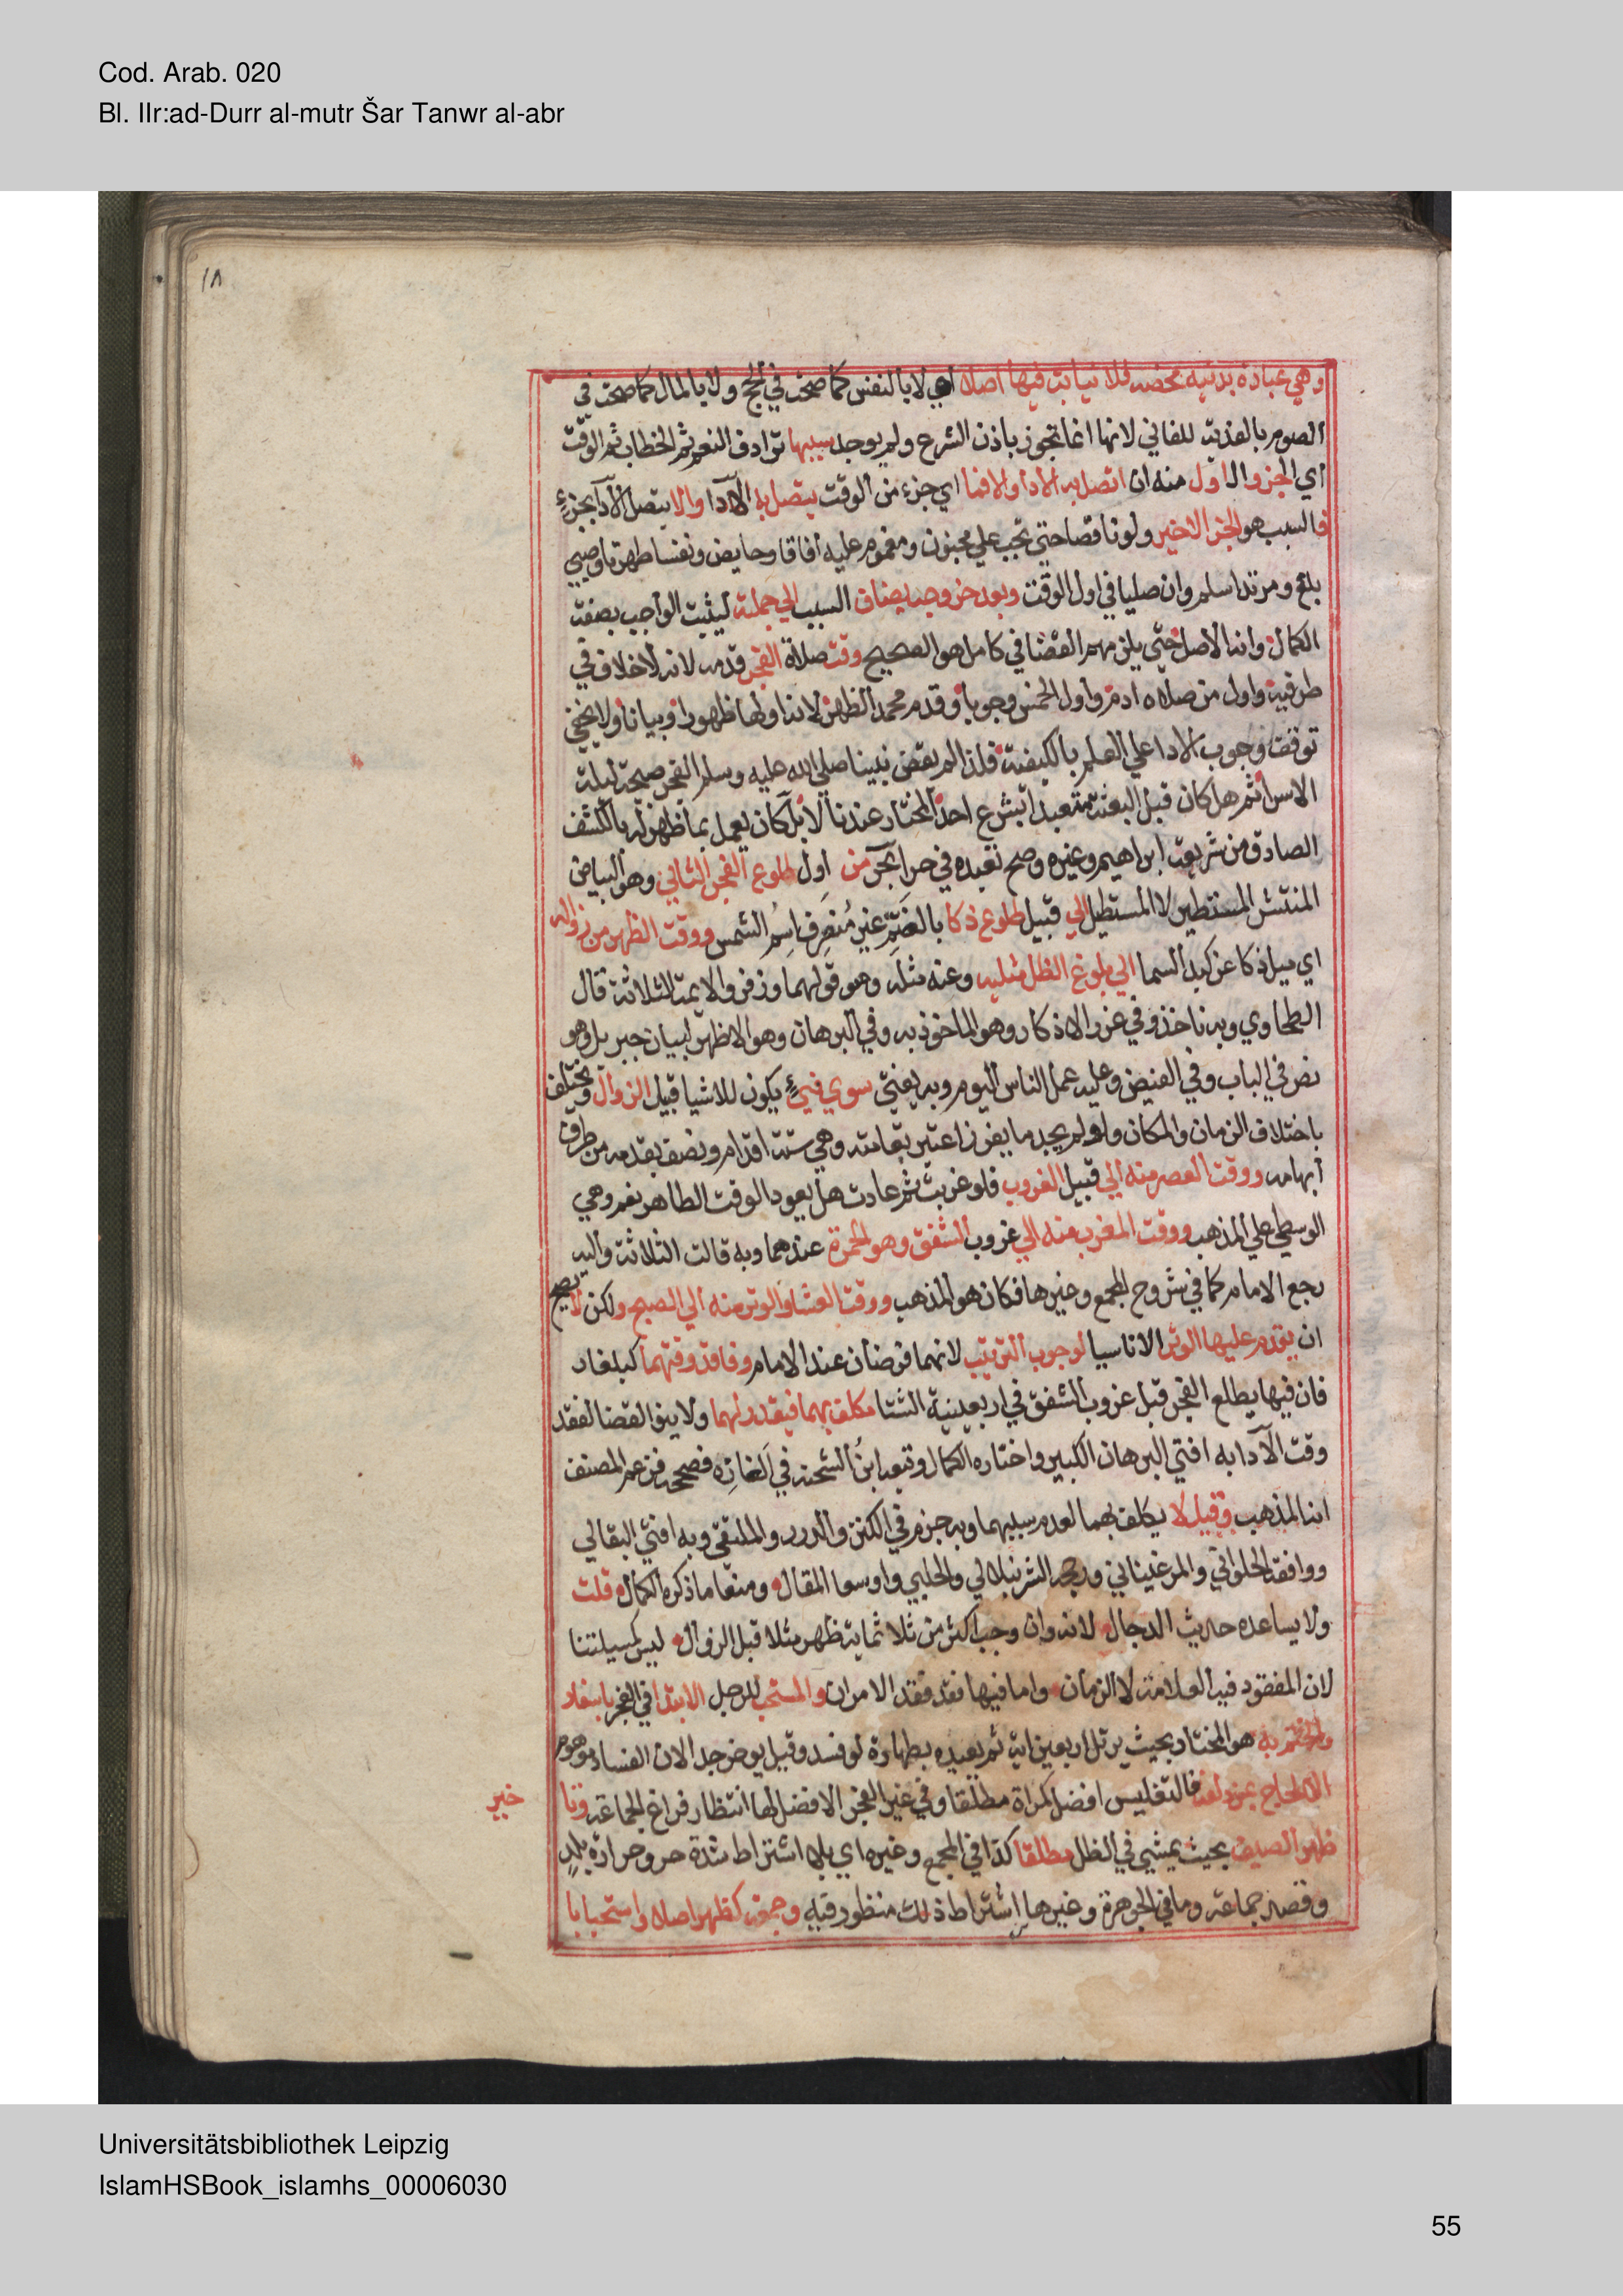 Cod. Arab. 020
Bl. IIr:ad-Durr al-mutr Šar Tanwr al-abr
١٨
وهي عبادة بدنية محضه فلا نيابة فيها اصلا اي لا بالنفس كما صحت في الحج ولا بالمال كما صحت في
الصوم بالفدية للفاني لانها انما تجوز باذن الشرع ولم يوجد سببها ترادف النعم ثم الخطاب ثم الوقت
اي الجزو الاول منه ان اتصل به الادا والا فما اي جزء من الوقت يتصل به الادا والا يتصل الادا بجزءٍ
فالسبب هو الجز الاخير ولو ناقصا حتي تجب علي مجنون ومغمي عليه افاقا وحايض ونفسا طهرتا وصبي
بلغ ومرتد اسلم وان صليا في اول الوقت وبعد خروجه يضاف السبب الي جملته ليثبت الواجب بصفة
الكمال وانه الاصل حتي يلزمهم القضا في كامل هو الصحيح وقت صلاة الفجر قدمه لانه لا خلاف في
طرفيه واول من صلاه ادم واول الخمس وجوبا وقدم محمد الظهر لانه اولها ظهورا وبيانا ولا يخفي
توقف وجوب الادا علي العلم بالكيفية فلذا لم يقض نبينا صلي الله عليه وسلم الفجر صبيحة ليلة
الاسرا ثم هل كان قبل البعثة متعبدا بشرع احد المختار عندنا لا بل كان يعمل بما ظهر له بالكشف
الصادق من شريعة ابراهيم وغيره وصح تعبده في حرا بحر من اول طلوع الفجر الثاني وهو البياض
المنتشر المستطير لا المستطيل الي قبيل طلوع ذكا بالضم غير منصرف اسم الشمس ووقت الظهر من زواله
اي ميل ذكا عن كبد السما الي بلوغ الظل مثليه وعنه مثله وهو قولهما وزفر والايمة الثلاثة قال
الطحاوي وبه ناخذ وفي غرر الاذكار وهو الماخوذ به وفي البرهان وهو الاظهر لبيان جبريل وهو
نص في الباب وفي الفيض وعليه عمل الناس اليوم وبه يفتي سوي فيءٍ يكون للاشيا قبيل الزوال ويختلف
باختلاف الزمان والمكان ولو لم يجد ما يغرز اعتبر بقامته وهي ستة اقدام ونصف بقدمه من طرف
ابهامه ووقت العصر منه الي قبيل الغروب فلو غربت ثم عادت هل يعود الوقت الظاهر نعم وهي
الوسطي علي المذهب ووقت المغرب منه الي غروب الشفق وهو الحمرة عندهما وبه قالت الثلاثة واليه
رجع الامام كما في شروح المجمع وغيرها فكان هو المذهب ووقت العشا والوتر منه الي الصبح ولكن لا يصح
ان يقدم عليها الوتر الا ناسيا لوجوب الترتيب لانهما فرضان عند الامام وفاقد وقتهما كبلغار
فان فيها يطلع الفجر قبل غروب الشفق في اربعينية الشتا مكلف بهما فيقدر لهما ولا ينو القضا لفقد
وقت الآدا به افتي البرهان الكبير واختاره الكمال وتبعه ابن الشحنة في الغازه فصححه فزعم المصنف
انه المذهب وقيل لا يكلف بهما لعدم سببهما وبه جزم في الكنز والدرر والملتقي وبه افتي البقالي
ووافقه الحلواني والمرغيناني ورجحه الشرنبلالي والحلبي واوسعا المقال ومنعا ما ذكره الكمال قلت
ولا يساعده حديث الدجال لانه وان وجب اكثر من ثلاثماية ظهر مثلا قبل الزوال ليس كمسيلتنا
لان المفقود فيه العلامة لا الزمان واما فيها فقد فقد الامران والمستحب للرجل الابتدا في الفجر باسفار
والختم به هو المختار بحيث يرتل اربعين اية ثم يعيده بطهارة لو فسد وقيل يوخر جدا لان الفساد موهوم
الا لحاج بمزدلفة فالتغليس افضل كمراة مطلقا وفي غير الفجر الافضل لها انتظار فراغ الجماعة وتا
خير
ظهر الصيف بحيث يمشي في الظل مطلقا كذا في المجمع وغيره اي بلا اشتراط شدة حر وحرارة بلدٍ
وقصد جماعة وما في الجوهرة وغيرها اشتراط ذلك منظور فيه وجمعة كظهر اصلا واستحبابا
Universitätsbibliothek Leipzig
IslamHSBook_islamhs_00006030
55